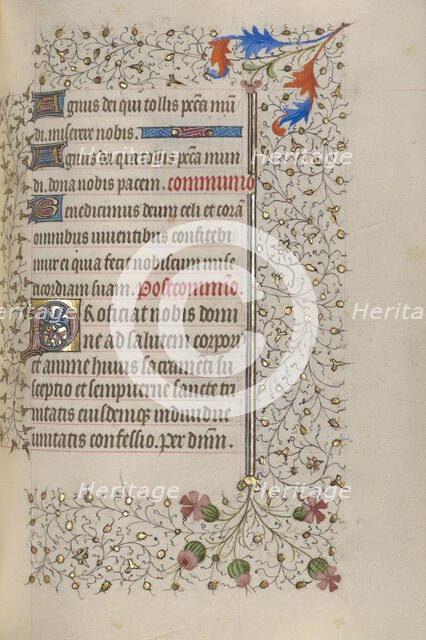 Agnus dei qui tollis pcca mu
di. miserere nobis.
Agnus dei qui tollis pcca mun
di. dona nobis pacem. communio
Benedicimus deum celi et cora
omnibus uiuentibus confitebi
mur ei quia fecit nobiscum mise
icordiam suam. Postcomunio.
Proficiat nobis domi
ne ad salutem corpor
et anime huius sacrameti su
sceptio et sempiterne sancte tri
nitatis eiusdemque indiuidue
unitatis confessio. Per dnm.
Heritage
Heritage
Heritage
Heritage
Heritage
Heritage
Heritage